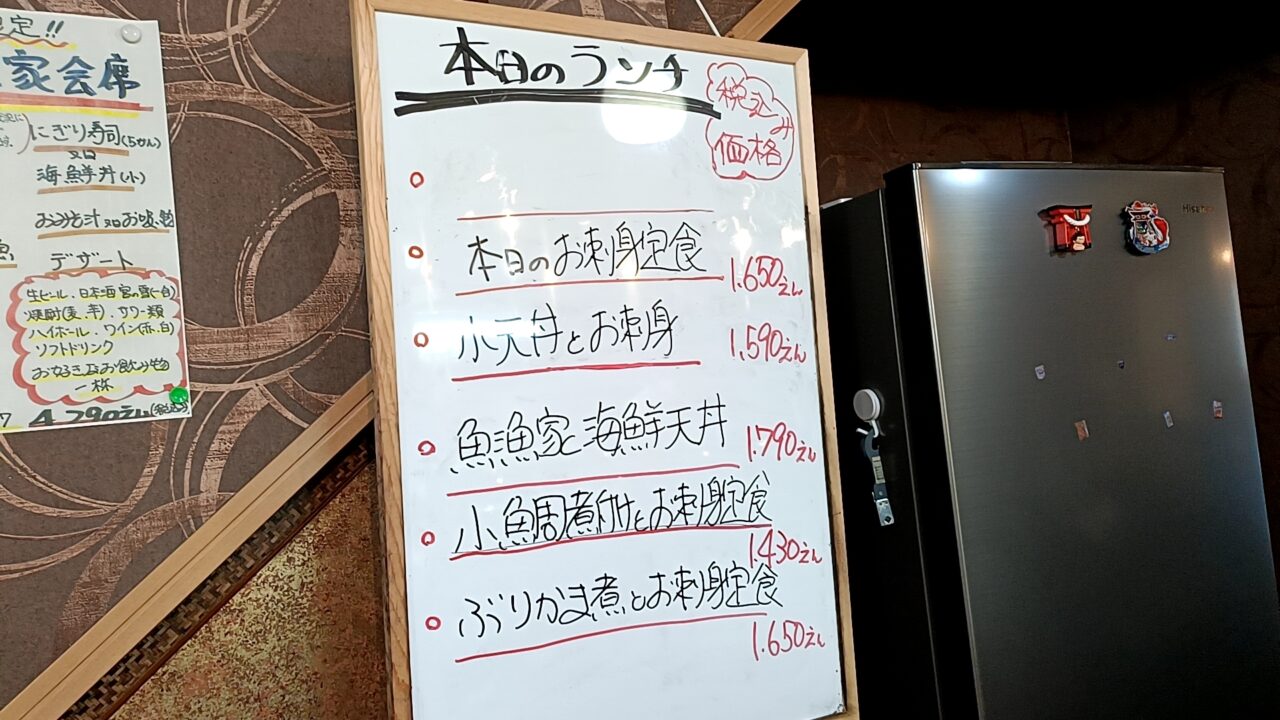 定!!
家会席
にぎり寿司(5かん)
又は
海鮮丼(小)
おみそ汁又はお吸い物
デザート
生ビール、日本酒宮の雪(一合)
焼酎(麦、芋)、サワー類
ハイボール、ワイン(赤、白)
ソフトドリンク
お好きなお飲み物
一杯
4,290えん(税込)
本日のランチ
税込み
価格
本日のお刺身定食
1.650えん
小天丼とお刺身
1.590えん
魚漁家海鮮天丼
1.790えん
小鯛煮付けとお刺身定食
1.430えん
ぶりかま煮とお刺身定食
1.650えん
Hisense